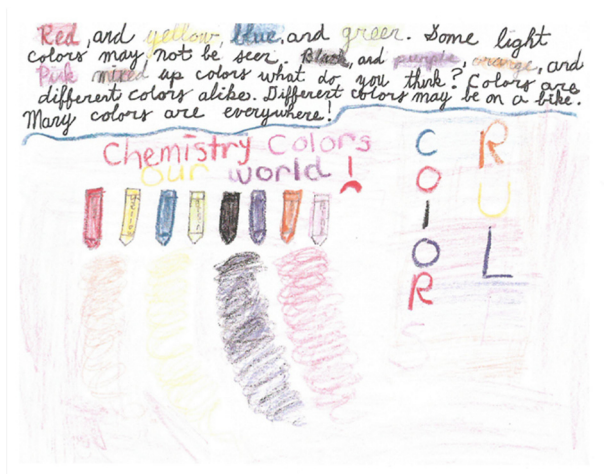 Red, and yellow, blue, and green. Some light
colors may not be seen. Black, and purple, orange, and
Pink mixed up colors what do you think? Colors are
different colors alike. Different colors may be on a bike.
Many colors are everywhere!
Chemistry Colors
our world!
COlOR
RUL